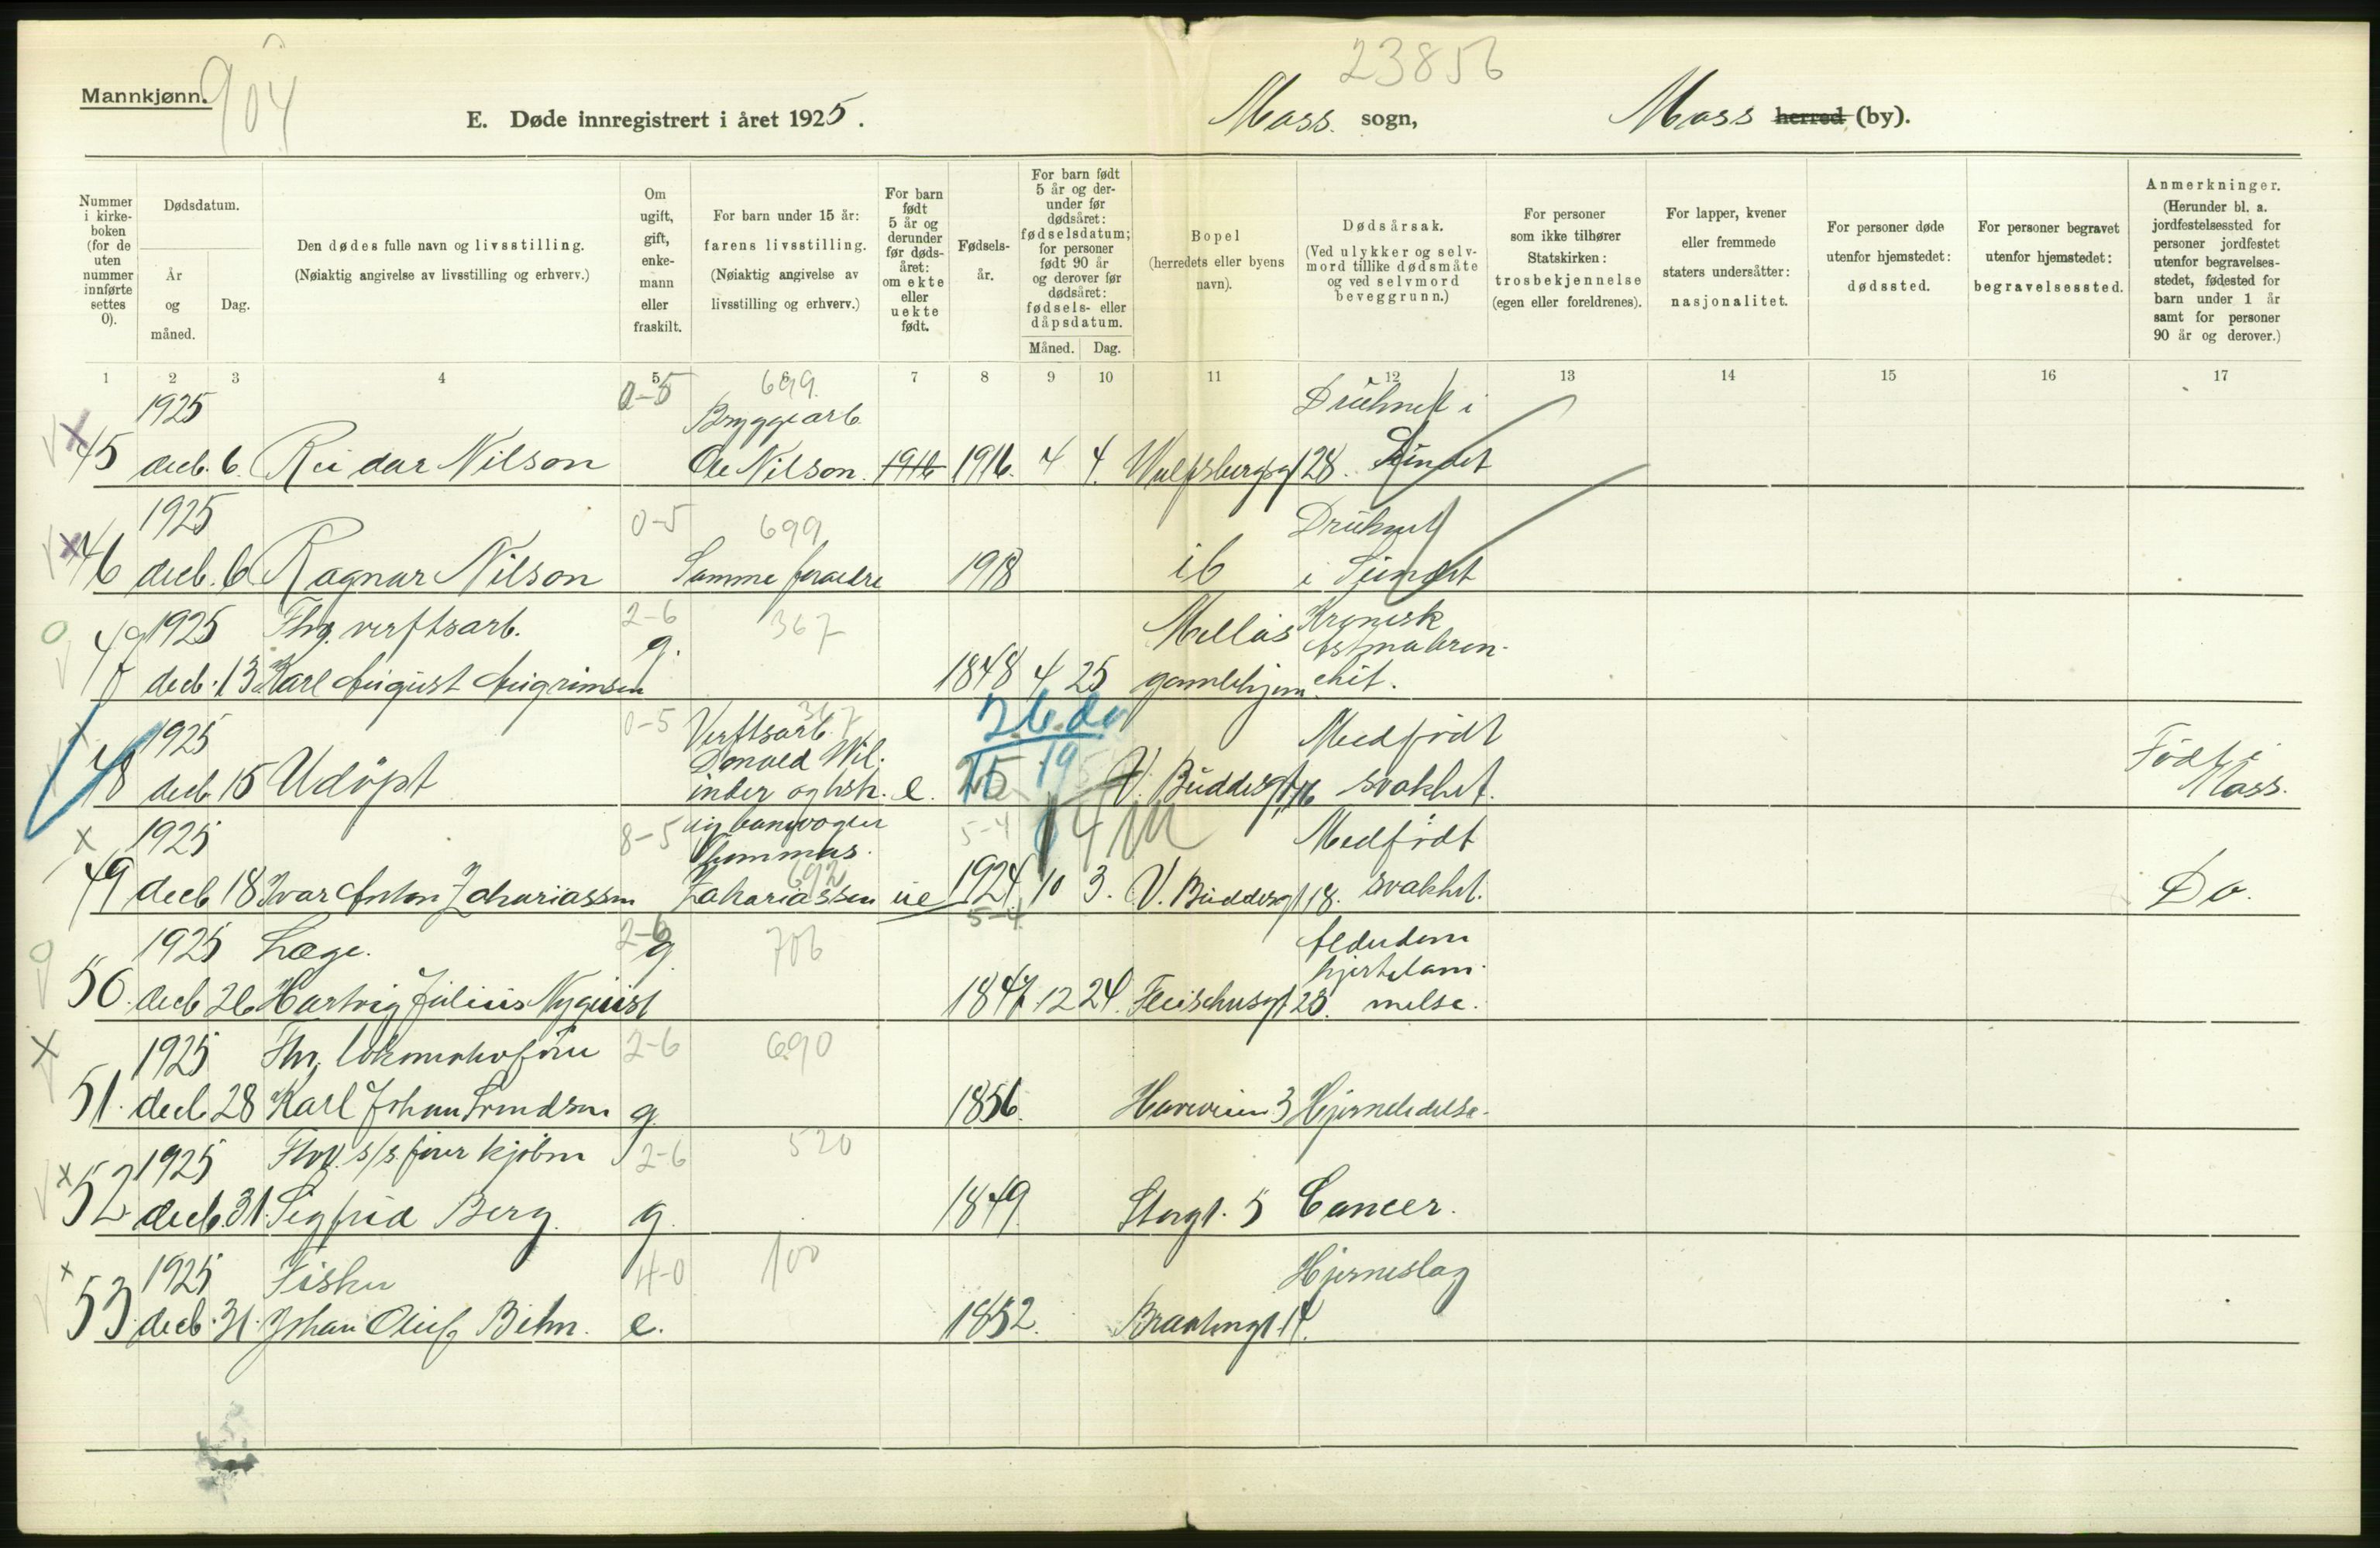 Mannkjønn.
904
23856
E. Døde innregistrert i året 1925.
Moss sogn,
Moss herred (by).
Nummer i kirke- boken (for de uten nummer innførte settes 0).
Dødsdatum.
År og måned.
Dag.
Den dødes fulle navn og livsstilling.
(Nøiaktig angivelse av livsstilling og erhverv.)
Om ugift, gift, enke- mann eller fraskilt.
For barn under 15 år: farens livsstilling. (Nøiaktig angivelse av livsstilling og erhverv.)
For barn født 5 år og derunder før døds- året: om ekte eller uekte født.
Fødsels- år.
For barn født 5 år og der- under før dødsåret: fødselsdatum; for personer født 90 år og derover før dødsåret: fødsels- eller dåpsdatum.
Måned. Dag.
Bopel (herredets eller byens navn).
Dødsårsak. (Ved ulykker og selv- mord tillike dødsmåte og ved selvmord beveggrunn.)
For personer som ikke tilhører Statskirken: trosbekjennelse (egen eller foreldrenes).
For lapper, kvener eller fremmede staters undersåtter: nasjonalitet.
For personer døde utenfor hjemstedet: dødssted.
For personer begravet utenfor hjemstedet: begravelsessted.
Anmerkninger. (Herunder bl. a. jordfestelsessted for personer jordfestet utenfor begravelses- stedet, fødested for barn under 1 år samt for personer 90 år og derover.)
1 2 3 4 5 6 7 8 9 10 11 12 13 14 15 16 17
1925 0-5 699 Bryggearb. Druknet i
45 decb. 6. Reidar Nilson Ole Nilson. 1916 1916. 4 4. Wulfsbergsgt 28. Sundet
1925 0-5 699 Druknet
46 decb. 6 Ragnar Nilson Samme foreldre 1918 ib i Sundet
1925 Fhv. verftsarb. 2-6 g. 367 Melløs Kronisk Astmabron-
decb. 13 Karl August Augrimsen 1848 4 25 gamlehjem chit.
1925 0-5 367 Verftsarb. 26 da Medfødt Født i
48 decb 15 Udøpt e. 25 19 V. Buddesgt 16 svakhet. Moss.
1925 8-5 5-4 Medfødt
49 decb 18 Ivar Anton Zakariassen Zakariassen 692 ue 1924. 10 3. V. Buddesgt 18. svakhet. Do.
5-4
1925 Læge. 2-6 g. 706 Alderdom hjertelam-
50. decb 26 Hartvig Julius Nyquist 1847 12 24. Fleischersgt 28. melse.
1925 Fhv. lokomotivfører 2-6 690
51. decb 28 Karl Johan g. 1856. 3 Hjernelidelse.
1925 Fhv. s/s fører 2-6 520
52 decb 31. Sigfrid Berg. g. 1849. Storgt. 5 Cancer.
1925 Fisker 4-0 100 Hjerneslag
53. decb. 31. Johan Oluf Behn. e. 1852. 14.